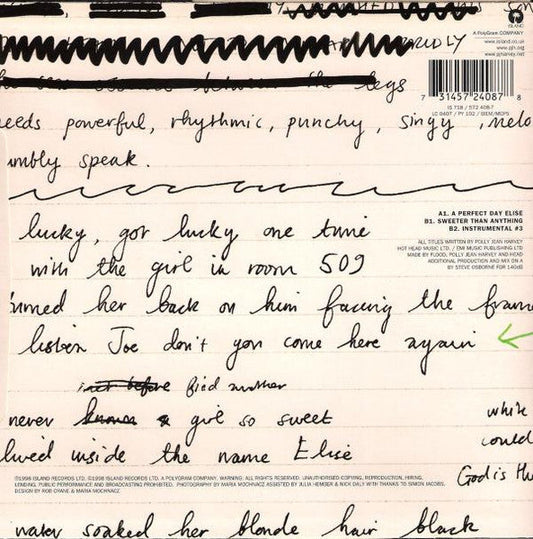 ISLAND
A PolyGram COMPANY
www.island.co.uk
www.pjh.org
www.pjharvey.net
legs
7 31457 24087 8
IS 718 / 572 408-7
LC 0407 / PY 102 / BIEM/MCPS
needs powerful, rhythmic, punchy, singy, melo
umbly speak.
A1. A PERFECT DAY ELISE
B1. SWEETER THAN ANYTHING
B2. INSTRUMENTAL #3
ALL TITLES WRITTEN BY POLLY JEAN HARVEY
HOT HEAD MUSIC LTD. / EMI MUSIC PUBLISHING LTD
MADE BY FLOOD, POLLY JEAN HARVEY AND HEAD
ADDITIONAL PRODUCTION AND MIX ON A
BY STEVE OSBORNE FOR 140dB
lucky, got lucky one time
with the girl in room 509
turned her back on him facing the frame
listen Joe don't you come here again
find another
never known a girl so sweet
lived inside the name Elise
white
could
God is the
℗1998 ISLAND RECORDS LTD. ©1998 ISLAND RECORDS LTD. A POLYGRAM COMPANY. WARNING. ALL RIGHTS RESERVED. UNAUTHORISED COPYING, REPRODUCTION, HIRING,
LENDING, PUBLIC PERFORMANCE AND BROADCASTING PROHIBITED. PHOTOGRAPHY BY MARIA MOCHNACZ ASSISTED BY JULIA HEMBER & NICK DALY WITH THANKS TO SIMON JACOBS.
DESIGN BY ROB CRANE & MARIA MOCHNACZ
water soaked her blonde hair black